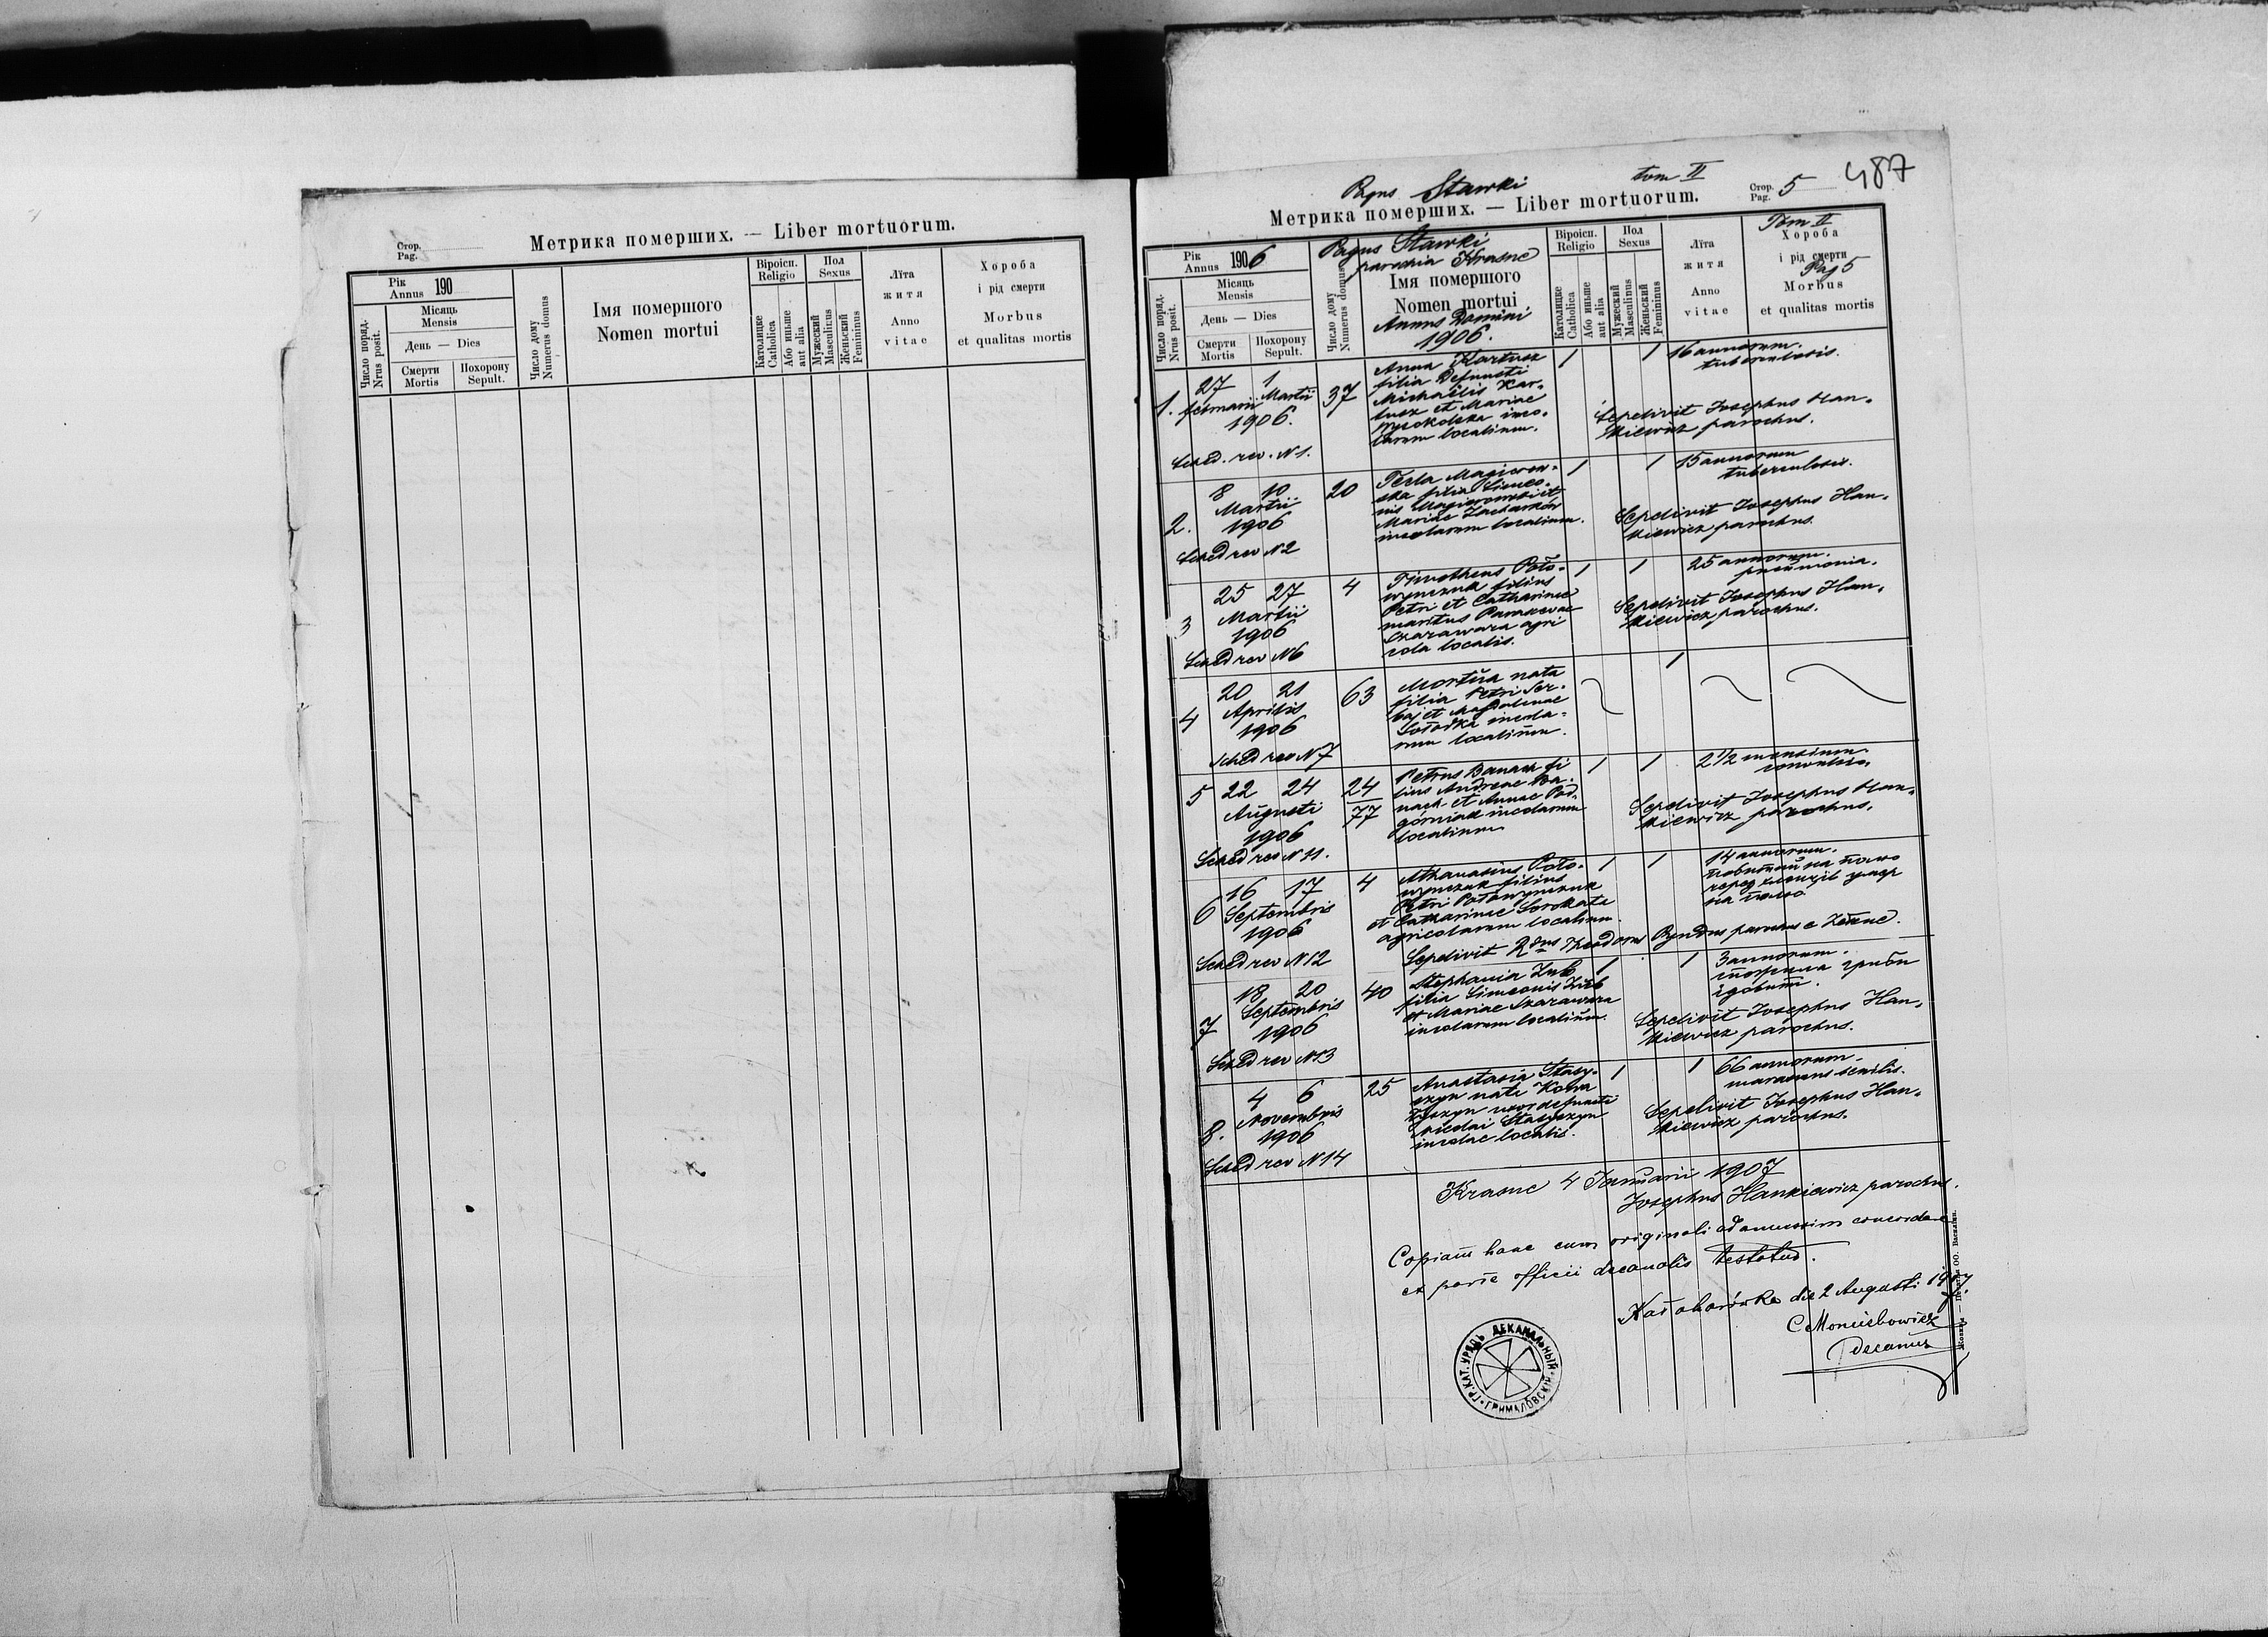 Стор.
Pag.
Метрика померших. — Liber mortuorum.
Рік
Annus 190
Місяць
Mensis
День — Dies
Число поряд.
Nrus posit.
Смерти
Mortis
Похорону
Sepult.
Число дому
Numerus domus
Імя помершого
Nomen mortui
Віроісп.
Religio
Католицке
Catholica
Або иньше
aut alia
Пол
Sexus
Мужеский
Masculinus
Женьский
Femininus
Літа
житя
Anno
vitae
Хороба
і рід смерти
Morbus
et qualitas mortis
Pagus Stawki
tom II
Стор.
Pag. 5
487
Метрика померших. — Liber mortuorum.
Рік
Annus 1906
Місяць
Mensis
День — Dies
Число поряд.
Nrus posit.
Смерти
Mortis
Похорону
Sepult.
Число дому
Numerus domus
Pagus Stawki
parochia Krasne
Імя помершого
Nomen mortui
Annus Domini
1906.
Віроісп.
Religio
Католицке
Catholica
Або иньше
aut alia
Пол
Sexus
Мужеский
Masculinus
Женьский
Femininus
Літа
житя
Anno
vitae
Tom II
Хороба
і рід смерти
Pag 5
Morbus
et qualitas mortis
1. 27 1 37
februarii Martii
1906.
Sched. rev. N 1.
Anna Kartusz
filia Defuncti
Michaelis Kar-
tusz et Mariae
Wysokolska inco-
larum localium.
1 1 16 annorum.
tuberculosis.
Sepelivit Josephus Han-
kiewicz parochus.
2. 8 10 20
Martii
1906
Sched rev N 2
Tecla
ska filia Simeo-
nis et
Mariae Zacharków
incolarum localium.
1 1 15 annorum
tuberculosis.
Sepelivit Josephus Han-
kiewicz parochus.
3 25 27 4
Martii
1906
Sched rev N 6
Timotheus Poło-
wynczuk filius
Petri et Catharinae
maritus Parascevae
Szarawara agri
cola localis.
1 1 25 annorum.
pneumonia.
Sepelivit Josephus Han-
kiewicz parochus.
4 20 21 63
Aprilis
1906
Sched rev N 7
Mortua nata
filia Petri Ser-
baj et Magdalenae
Sołodka incola-
rum localium.
1
5 22 24 24
77
Augusti
1906
Sched rev N 11.
Petrus Banach fi
lius Andreae Ba-
nach et Annae Pod-
górniak incolarum
localium
1 1 2 1/2 mensium
Sepelivit Josephus Han-
kiewicz parochus.
6 16 17 4
Septembris
1906
Sched rev N 12
Athanasius Poło-
wynczuk filius
Petri Połowynczuk
et Catharinae Sorokata
agricolarum localium.
1 1 14 annorum.
на
перед умер
на
Sepelivit Rdus Theodorus parochus e
7 18 20 40
Septembris
1906
Sched rev N 13
Stephania Zub
filia Simeonis Zub
et Mariae Szarawara
incolarum localium.
1 1 3 annorum.
гриби
Sepelivit Josephus Han-
kiewicz parochus.
8. 4 6 25
Novembris
1906
Sched rev N 14
Anastasia Stasy-
szyn nata Kowa
uxor defuncti
Nicolai Stasyszyn
incolae localis.
1 1 66 annorum.
marasmus senilis.
Sepelivit Josephus Han-
kiewicz parochus.
Krasne 4 Januarii 1907
Josephus Hankiewicz parochus.
Copiam hanc cum originali ad amussim concordare
ex parte officii decanalis testatur.
die 2 Augusti 1907
decanus
ГР. КАТ. УРЯДЪ ДЕКАНАЛЬНЫЙ ГРИМАЛОВСКІЙ